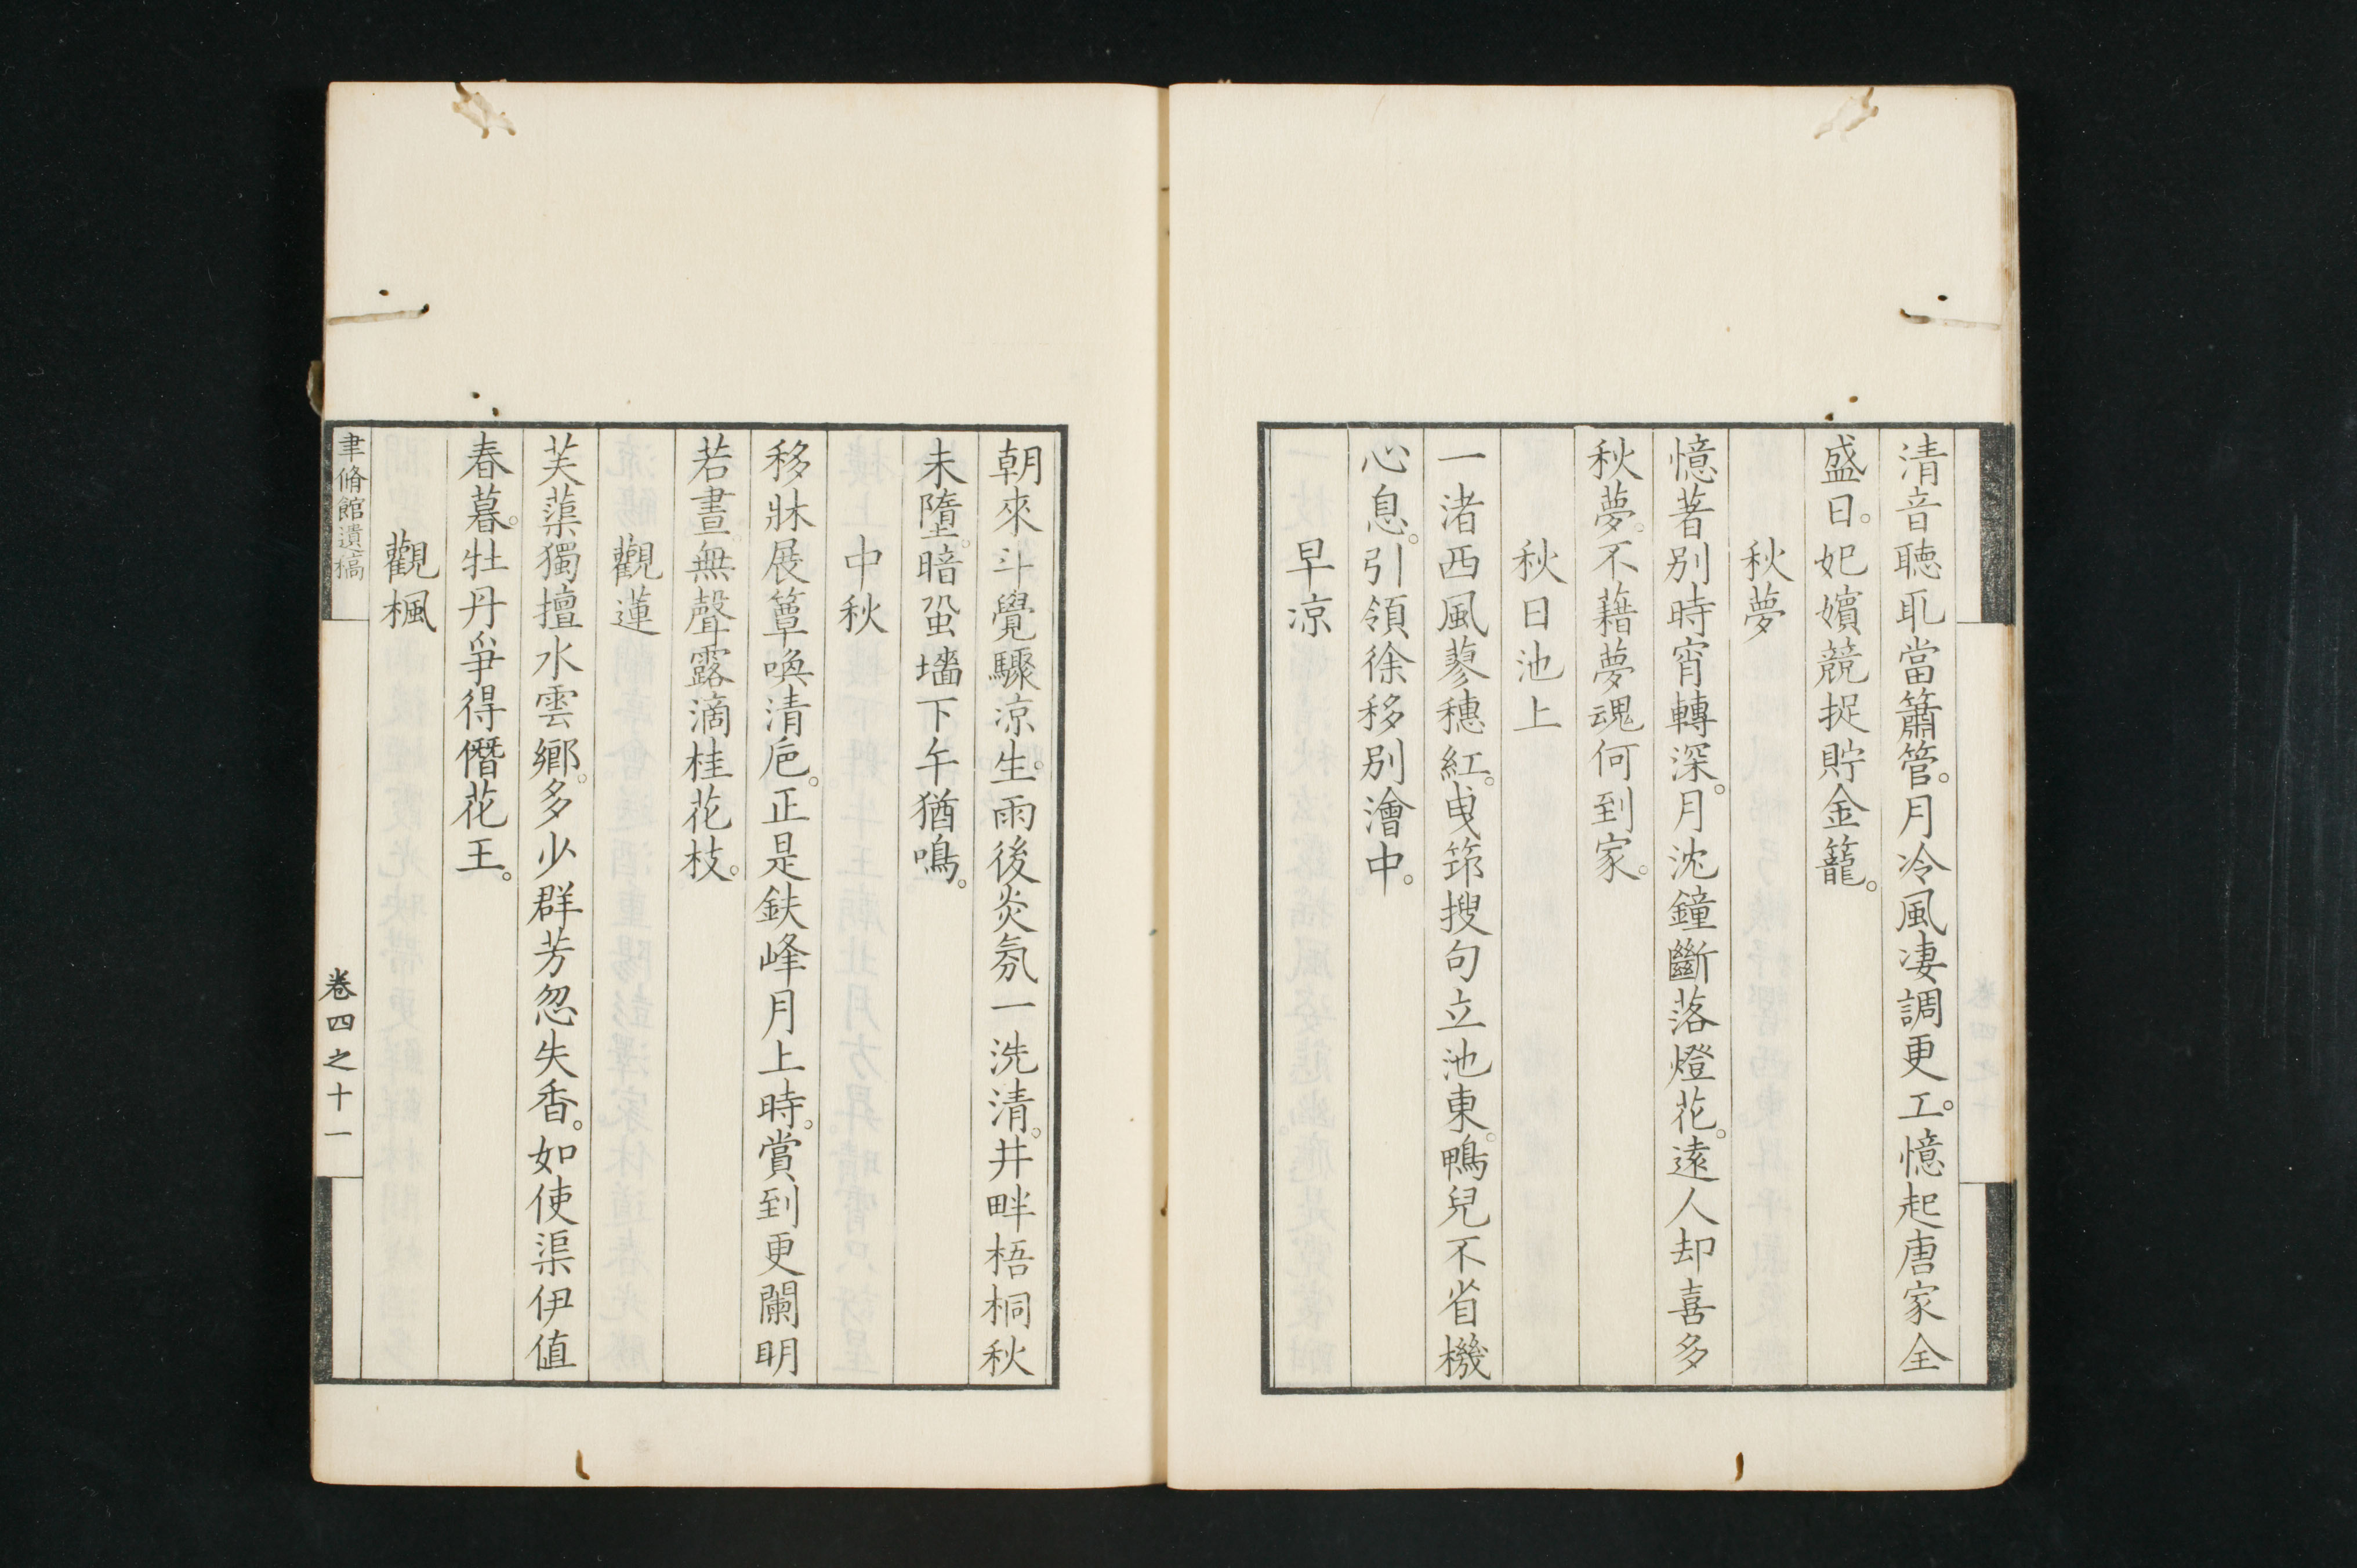 清音聽耴當簫管。月冷風凄調更工。憶起唐家全
盛日。妃嬪競捉貯金籠。
秋夢
憶著別時宵轉深。月沈鐘斷落燈花。遠人却喜多
秋夢。不藉夢魂何到家。
秋日池上
一渚西風蓼穗紅。曳筇搜句立池東。鴨兒不省機
心息。引領徐移別澮中。
早凉
朝來斗覺驟凉生。雨後炎氛一洗清。井畔梧桐秋
未墮。暗蛩墻下午猶鳴。
中秋
移牀展簟喚清巵。正是鈇峰月上時。賞到更闌明
若晝。無聲露滴桂花枝。
觀蓮
芙蕖獨擅水雲鄉。多少群芳忽失香。如使渠伊値
春暮。牡丹爭得僭花王。
觀楓
聿脩館遺稿
卷四之十一